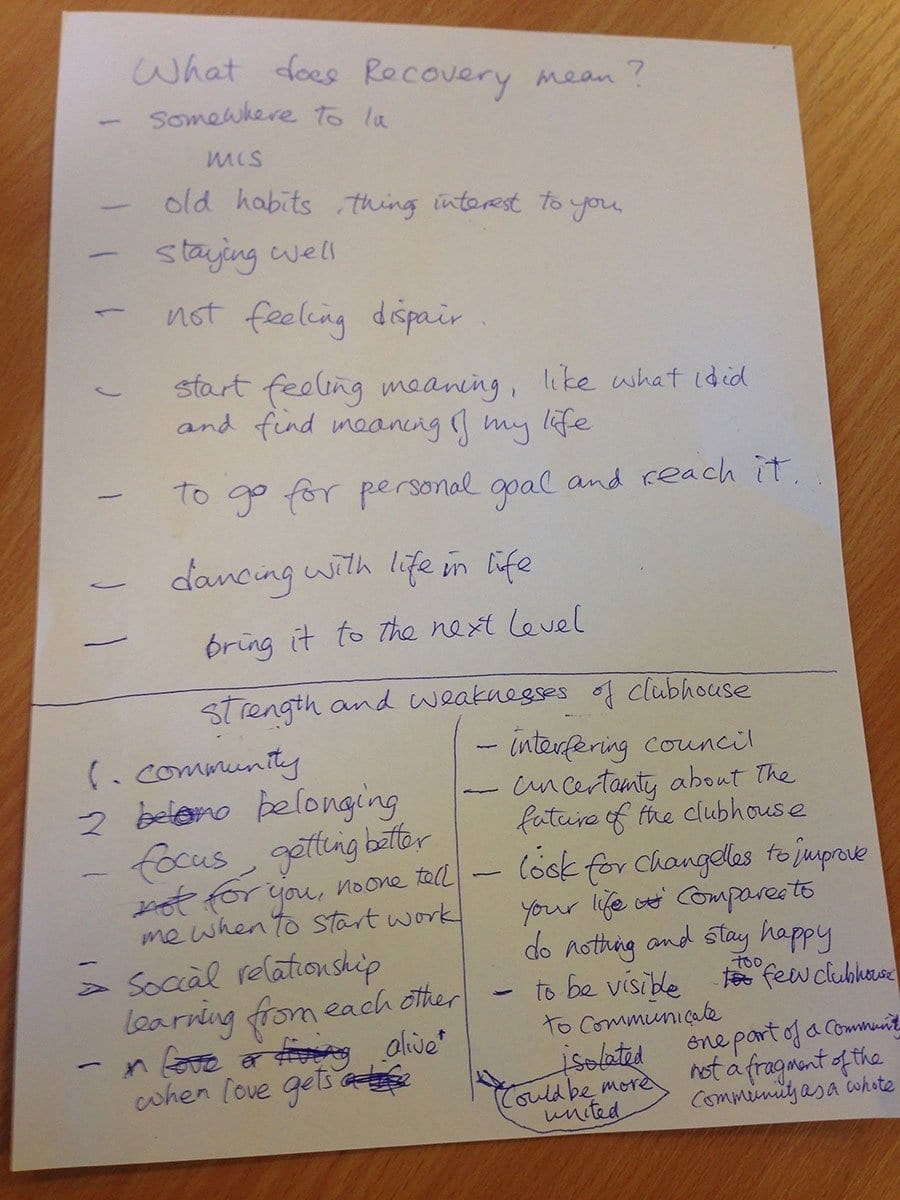 What does Recovery mean?
- somewhere to la
mis
- old habits, thing interest to you
- staying well
- not feeling dispair.
- start feeling meaning, like what I did
and find meaning of my life
- to go for personal goal and reach it.
- dancing with life in life
- bring it to the next level
strength and weaknesses of clubhouse
1. community
2 belono belonging
- focus, getting better
not for you, no one tell
me when to start work
-
> Social relationship
learning from each other
- n love a living alive
when love gets
- interfering council
- uncertainty about the
future of the clubhouse
- look for changelles to improve
your life compares to
do nothing and stay happy
- to be visible
to communicate
isolated
could be more
united
too few clubhouse
one part of a community
not a fragment of the
community as a whole